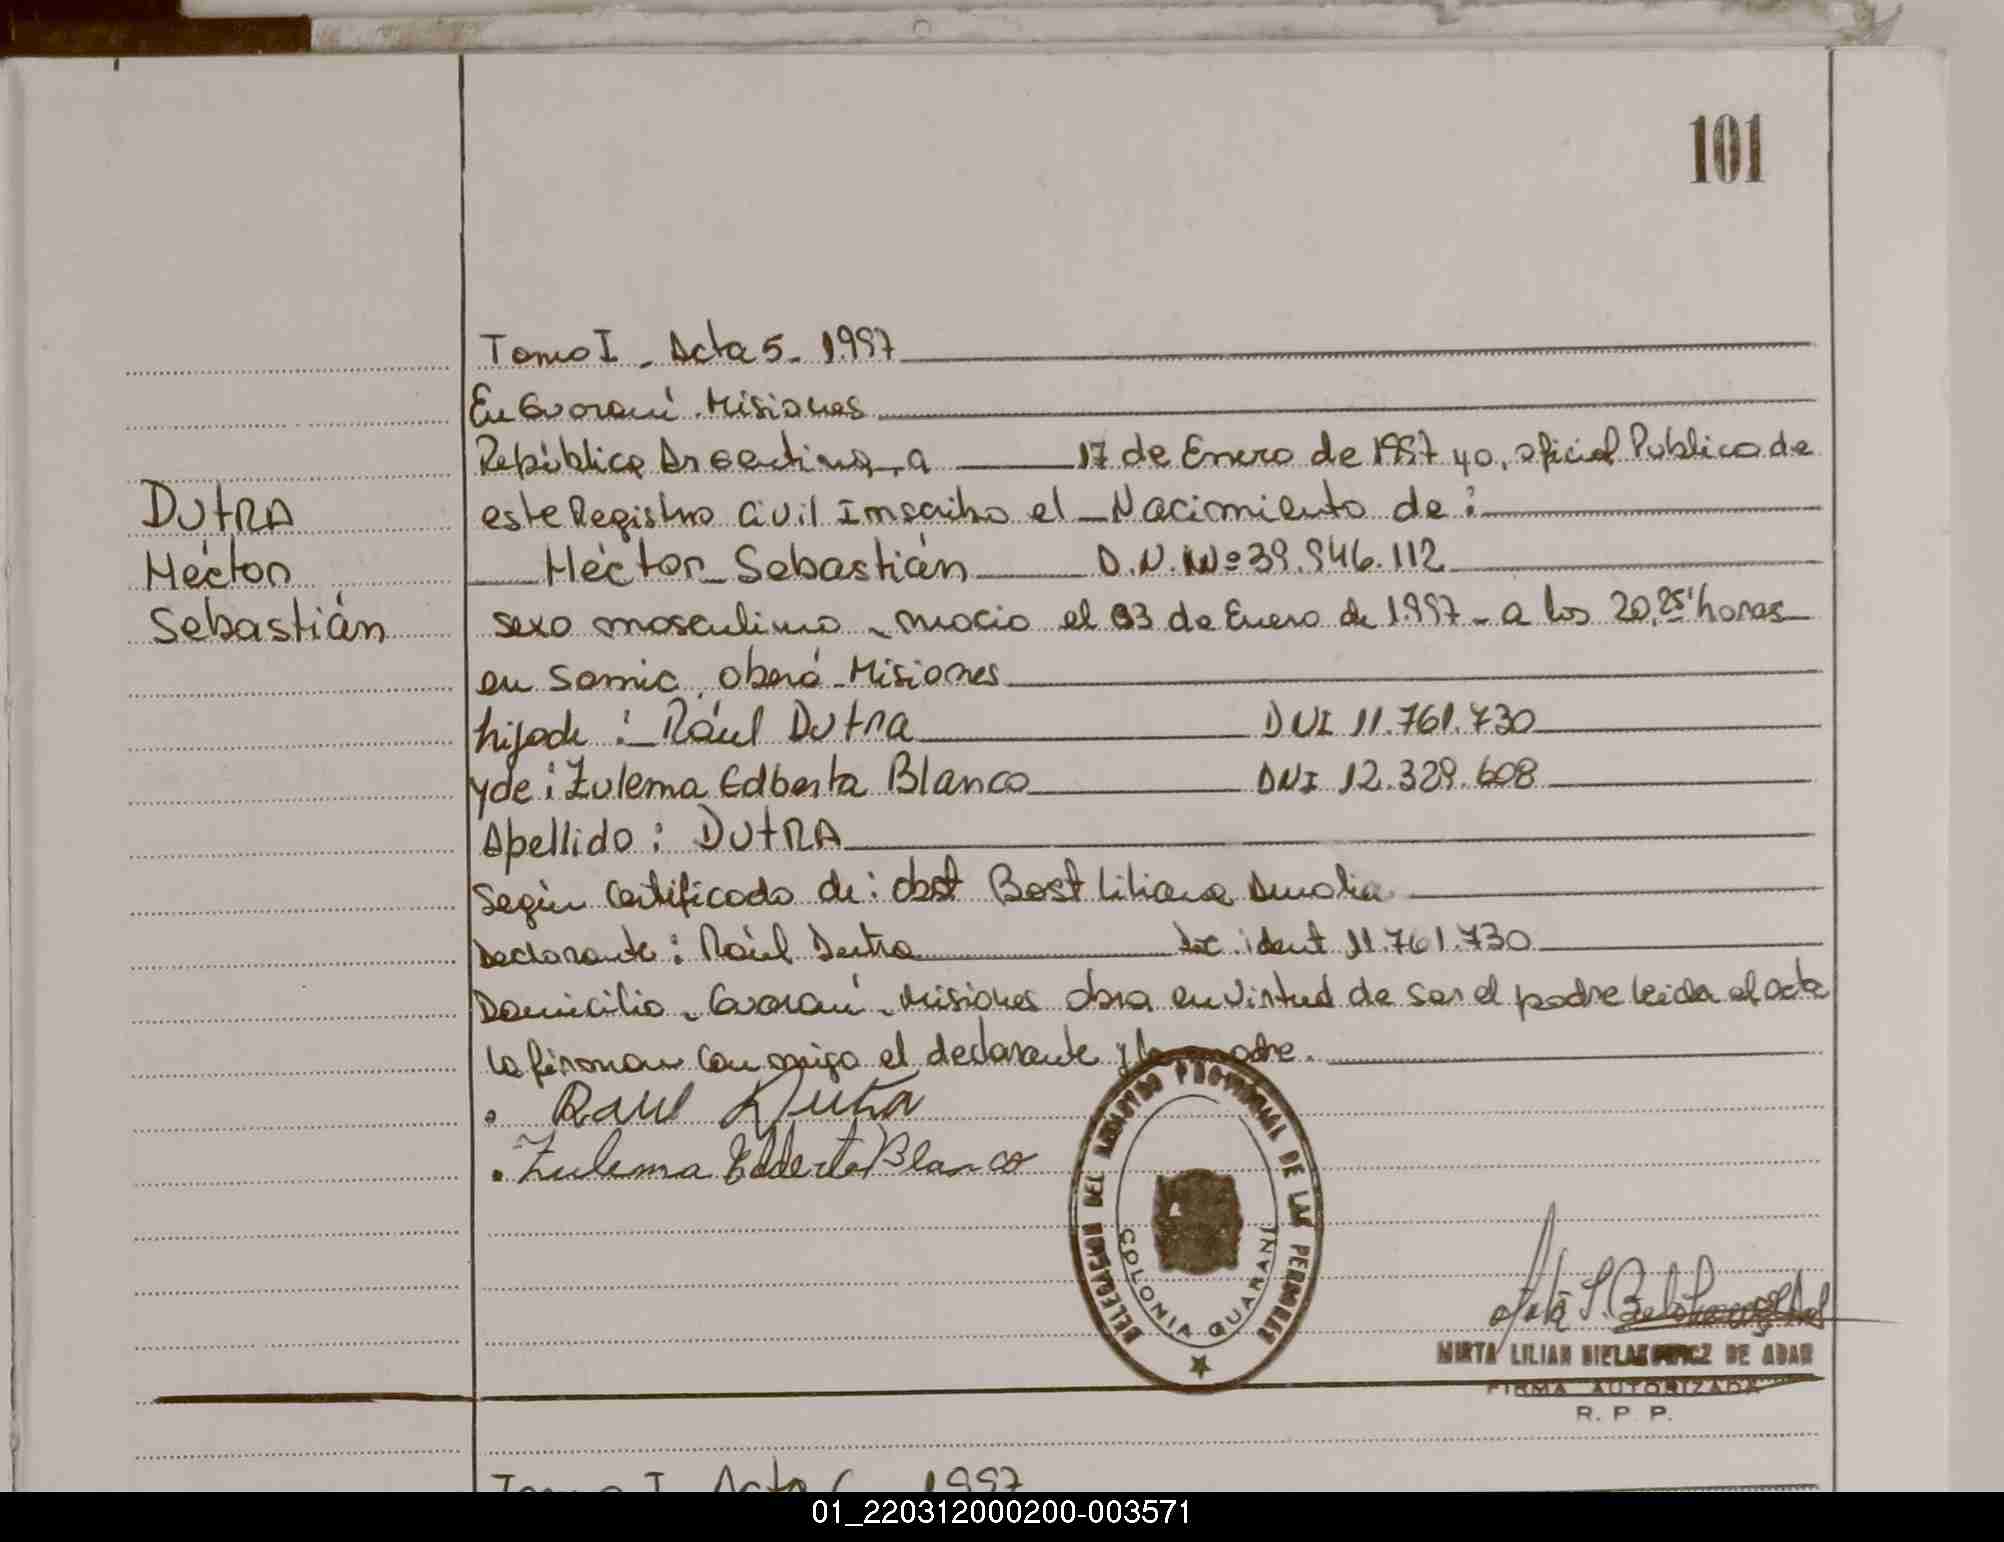 101
Tomo I - Acta 5 - 1.997
En Guaraní Misiones
República Argentina, a 17 de Enero de 1997 yo, oficial Publico de
este Registro Civil Inscribo el Nacimiento de :
DUtRA
Héctor Sebastián D.N.I Nº 39.946.112
Héctor
sexo masculino - nacio el 03 de Enero de 1.997 - a las 20,25' horas
Sebastián
en Samic, oberá - Misiones
hijo de : Rául Dutra DNI 11.761.730
y de : Zulema Edberta Blanco DNI 12.329.608
Apellido : DUtRA
Según Certificado de : obst Bost Liliana Amalia
Declarante : Raúl Dutra Doc. ident 11.761.730
Domicilio - Guaraní - Misiones obra en virtud de ser el padre leida el acta
la firman conmigo el declarante y la madre.
. Raul Dutra
. Zulema Edberta Blanco
DELEGACION DEL REGISTRO PROVINCIAL DE LAS PERSONAS
COLONIA GUARANI
MIRTA LILIAN DE ADAM
FIRMA AUTORIZADA
R. P. P.
Tomo I Acta 6 1997
01_220312000200-003571